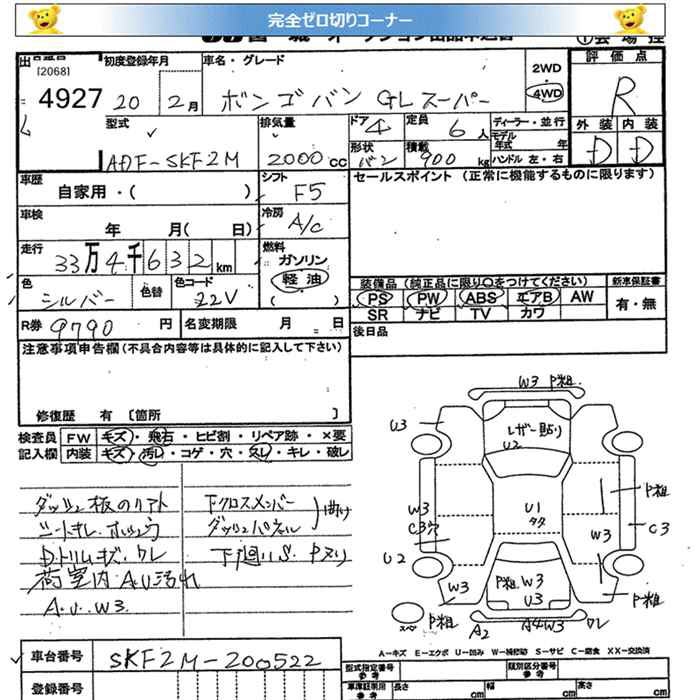 完全ゼロ切りコーナー
[2068]
4927
初度登録年月
20 2月
車名・グレード
ボンゴバン GLスーパー
2WD
4WD
評価点
R
外装 内装
D D
型式
ADF-SKF2M
排気量
2000 cc
ドア 4
定員 6 人
形状 バン
積載 900 kg
ディーラー・並行
モデル年式 年
ハンドル 左・右
車歴
自家用・( )
シフト
F5
セールスポイント (正常に機能するものに限ります)
車検
年 月( 日)
冷房
A/C
走行
33万4千632km
燃料
ガソリン
軽油
( )
色
シルバー
色替
色コード
22V
装備品 (純正品に限り〇をつけてください)
新車保証書
PS PW ABS エアB AW
有・無
SR ナビ TV カワ
R券 9790 円
名変期限 月 日
後日品
注意事項申告欄(不具合内容等は具体的に記入して下さい)
修復歴 有 [箇所 ]
検査員 FW キズ・飛石・ヒビ割・リペア跡・×要
記入欄 内装 キズ・汚レ・コゲ・穴・スレ・キレ・破レ
ダッシュ板のリアト
シートキレ・ホシュウ
D.トリムキズ.ワレ
荷室内A.U汚れ
A.U.W3
下クロスメンバー
ダッシュパネル
曲り
下廻りS.Pヌリ
W3 P粗
U3
レザー貼り
U2
W3
C3穴
U1
タタ
P粗
W3
C3
U2
W3
P粗 W3
U3
P粗
スペ
P粗
A2
A4W3 ワレ
A-キズ E-エクボ U-凹み W-補修跡 S-サビ C-腐食 XX-交換済
車台番号 SKF2M-200522
登録番号
型式指定番号
参考
類別区分番号
参考
車庫証明用
参考
長さ cm
幅 cm
高さ cm